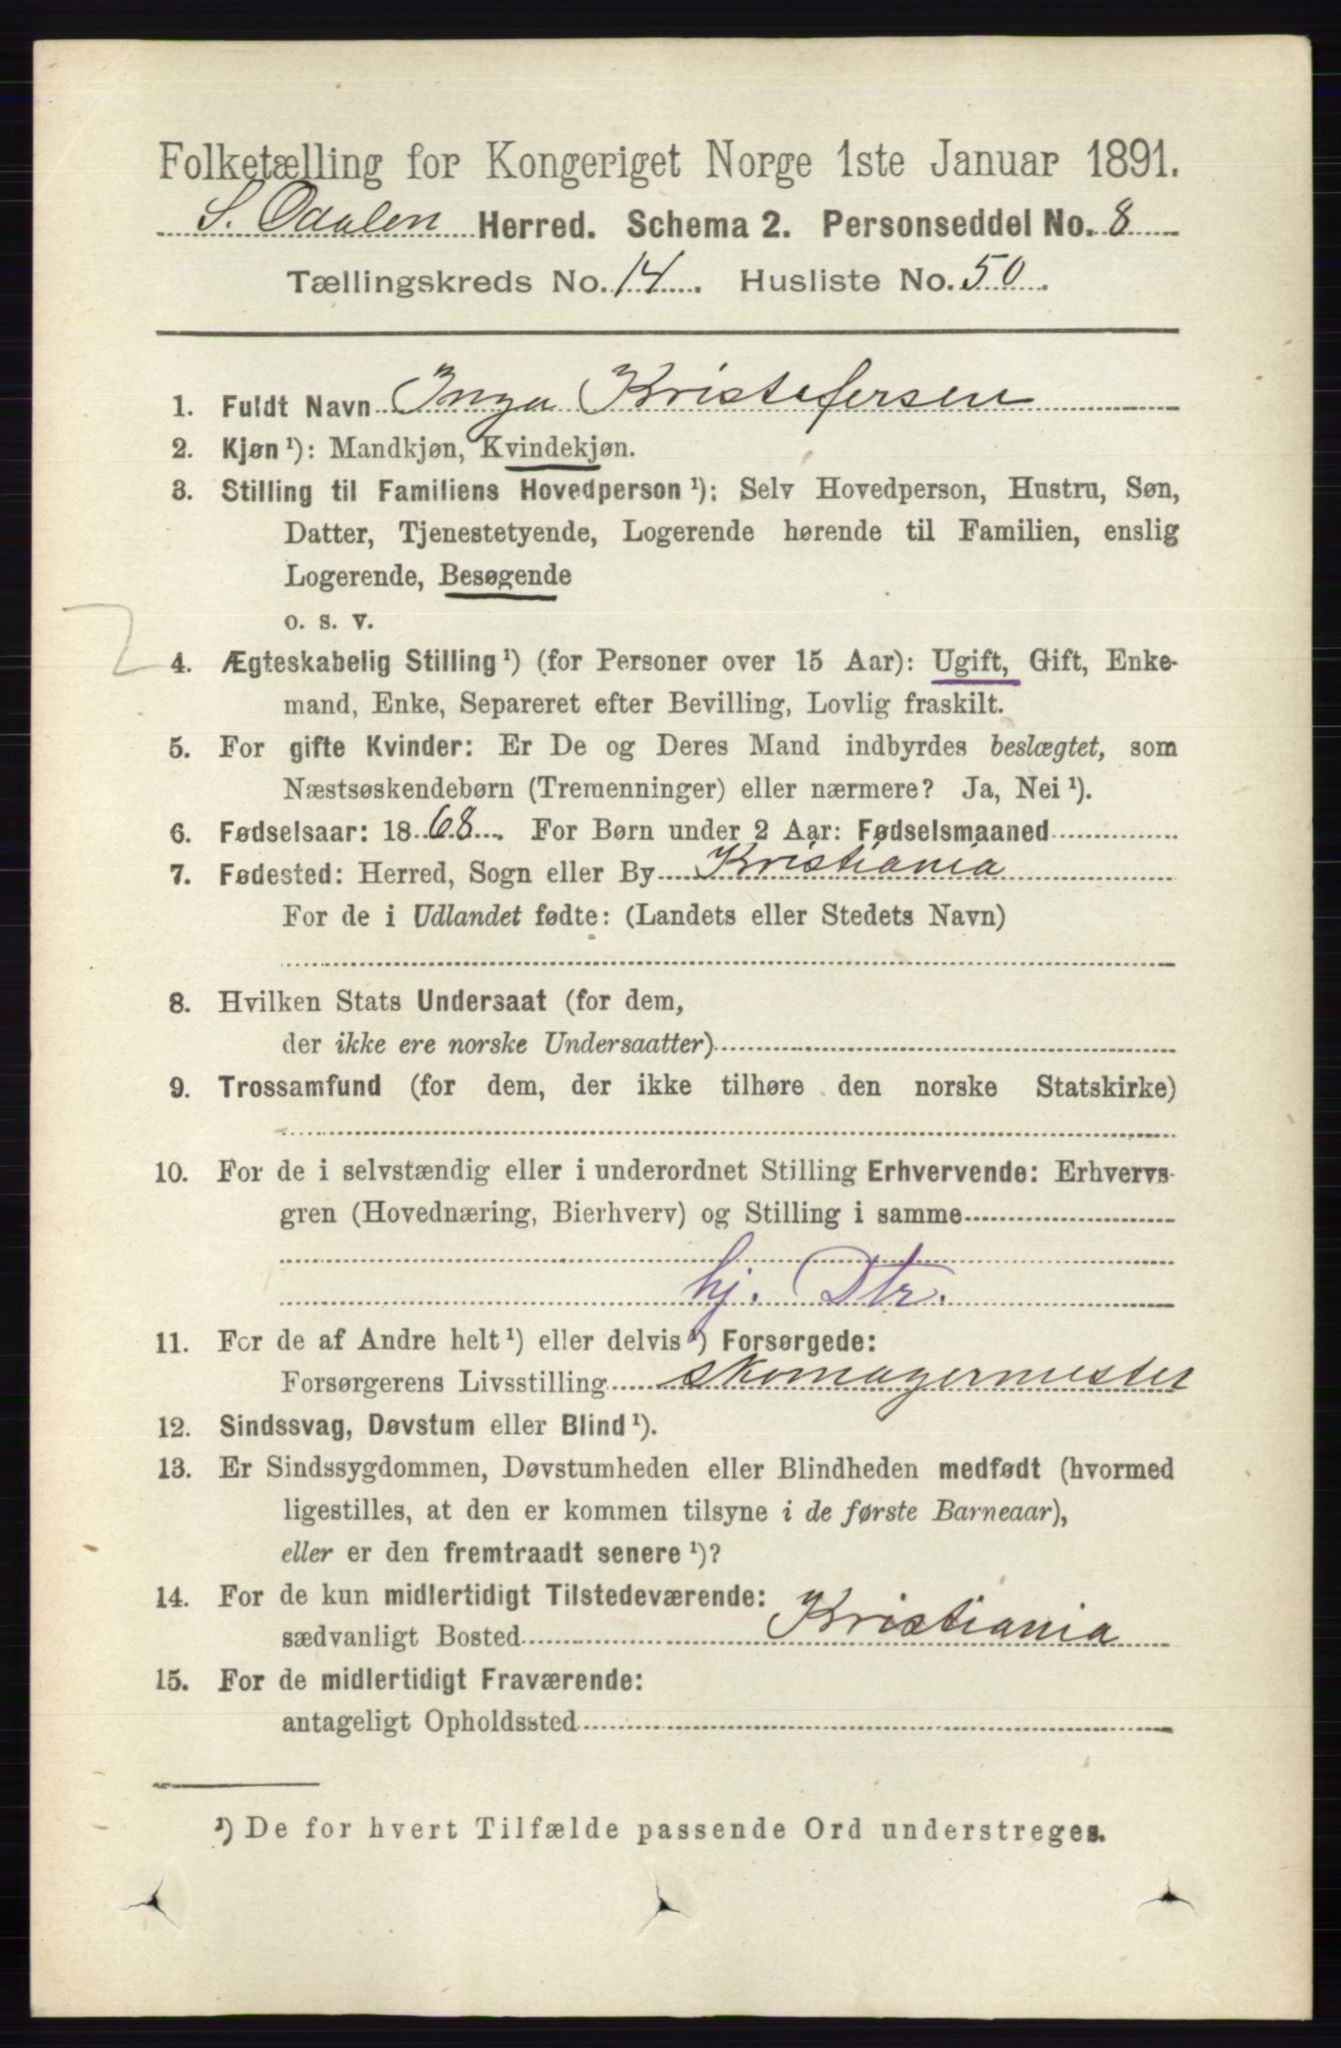 Folketælling for Kongeriget Norge 1ste Januar 1891.
S. Odalen Herred. Schema 2. Personseddel No. 8
Tællingskreds No. 14. Husliste No. 50.
1. Fuldt Navn Inga Kristofersen
2. Kjøn ¹): Mandkjøn, Kvindekjøn.
3. Stilling til Familiens Hovedperson ¹): Selv Hovedperson, Hustru, Søn,
Datter, Tjenestetyende, Logerende hørende til Familien, enslig
Logerende, Besøgende
o. s. v.
2
4. Ægteskabelig Stilling ¹) (for Personer over 15 Aar): Ugift, Gift, Enke-
mand, Enke, Separeret efter Bevilling, Lovlig fraskilt.
5. For gifte Kvinder: Er De og Deres Mand indbyrdes beslægtet, som
Næstsøskendebørn (Tremenninger) eller nærmere? Ja, Nei ¹).
6. Fødselsaar: 1868. For Børn under 2 Aar: Fødselsmaaned
7. Fødested: Herred, Sogn eller By Kristiania
For de i Udlandet fødte: (Landets eller Stedets Navn)
8. Hvilken Stats Undersaat (for dem,
der ikke ere norske Undersaatter)
9. Trossamfund (for dem, der ikke tilhøre den norske Statskirke)
10. For de i selvstændig eller i underordnet Stilling Erhvervende: Erhvervs-
gren (Hovednæring, Bierhverv) og Stilling i samme
hj. Dtr.
11. For de af Andre helt ¹) eller delvis ¹) Forsørgede:
Forsørgerens Livsstilling skomagermester
12. Sindssvag, Døvstum eller Blind ¹).
13. Er Sindssygdommen, Døvstumheden eller Blindheden medfødt (hvormed
ligestilles, at den er kommen tilsyne i de første Barneaar),
eller er den fremtraadt senere ¹)?
14. For de kun midlertidigt Tilstedeværende:
sædvanligt Bosted Kristiania
15. For de midlertidigt Fraværende:
antageligt Opholdssted
¹) De for hvert Tilfælde passende Ord understreges.